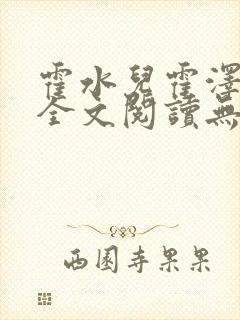 霍水兒霍澤
全文閱讀無
西園寺果果